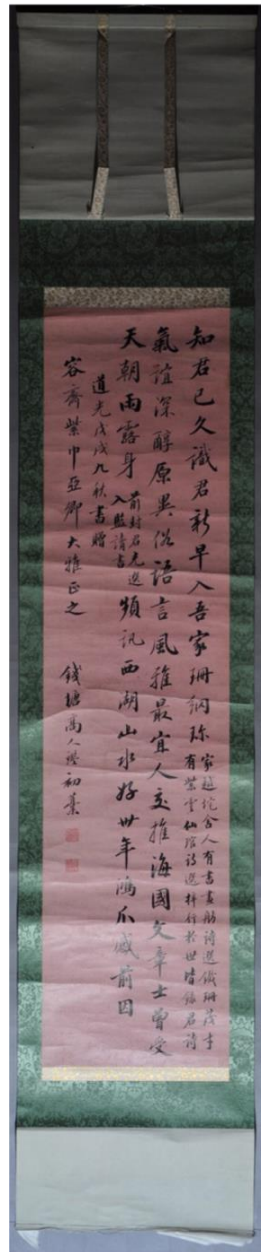 知君已久識君新早入吾家珊網珍
家越舍人有書畫舫詩選珊茂才
有紫雲仙館詩選梓行於世皆錄君詩
氣誼深醇原異俗語言風雅最宜人交推海國文章士曾受
天朝雨露身
前封君充選
入監讀書
頻訊西湖山水好卅年鴻爪感前因
道光戊戌九秋書贈
容齋紫巾亞卿大雅正之
錢塘高人鑑初藁